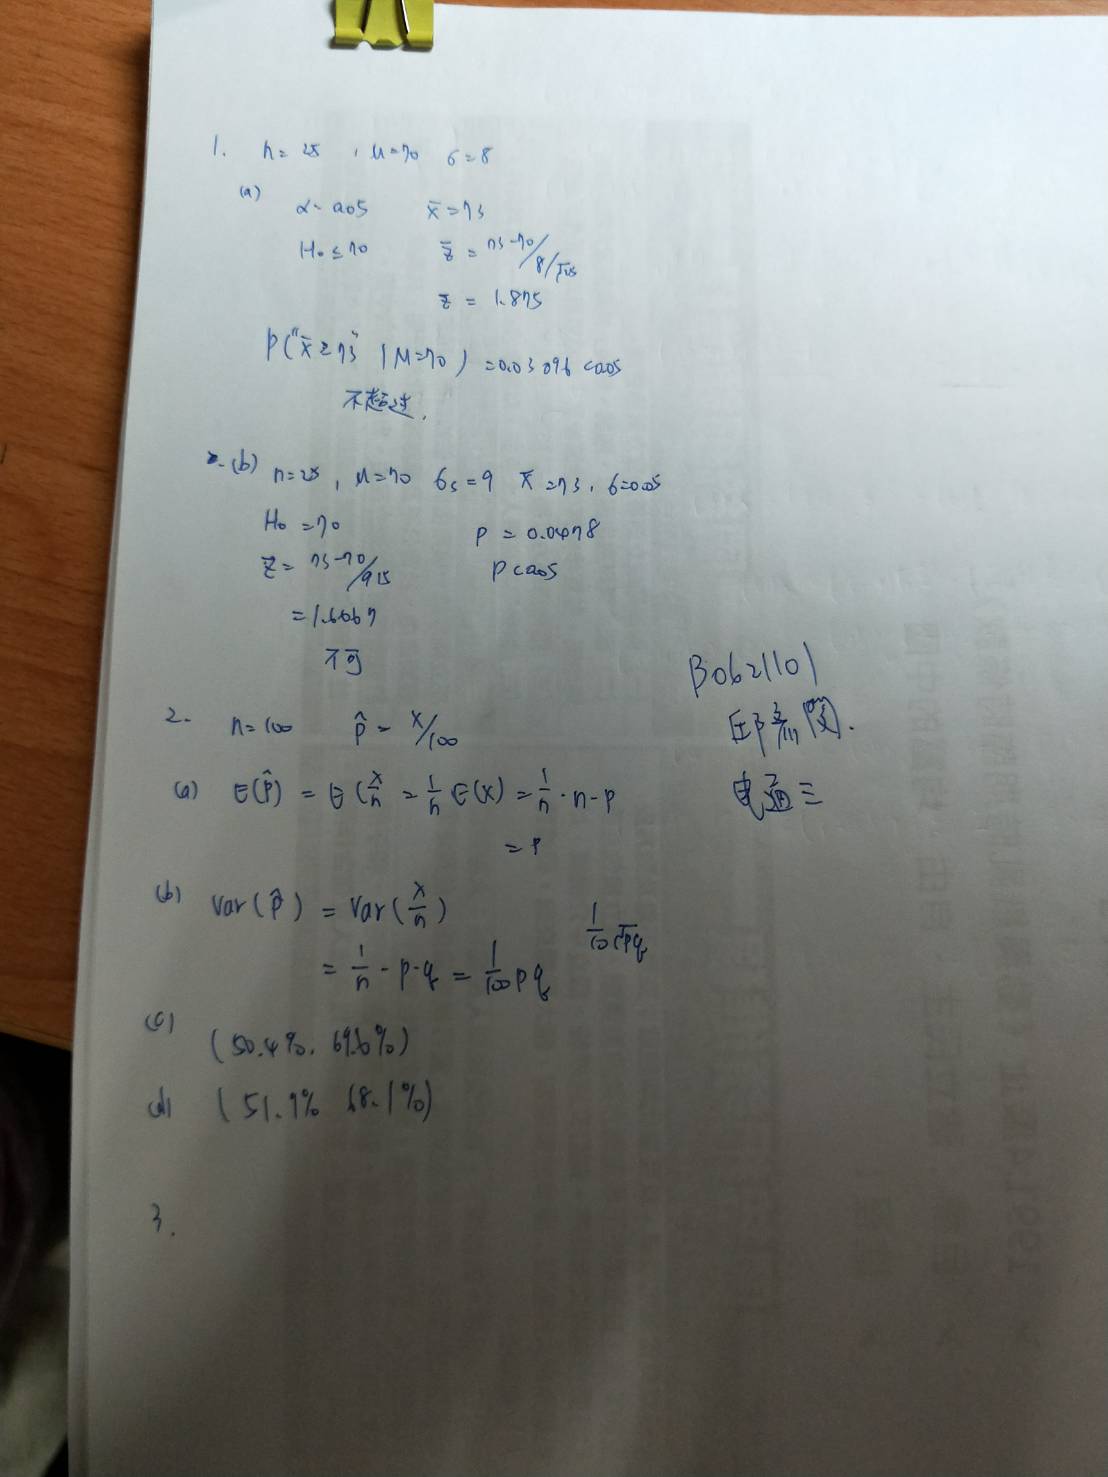 1. n = 25 , μ=70 σ=8
(a) α = 0.05 x̄ = 73
H₀ ≤ 70 z = 73-70/8/√25
z = 1.875
P("x̄ ≥ 73" | μ=70) = 0.03 < 0.05
不超过.
(b) n=25, μ=70 6s = 9 x̄ = 73, 6=0.05
H₀ = 70 P = 0.0478
z = 73-70/9/5 P < 0.05
= 1.6667
不可
B0621101
电通三
2. n=100 p̂ = x/100
(a) E(p̂) = E(x/n = 1/n E(x) = 1/n · n · p
= p
(b) Var(p̂) = Var(x/n)
= 1/n · p · q = 1/100 pq
1/10 √pq
(c) (50.4%, 69.6%)
(d) (51.9% 68.1%)
3.